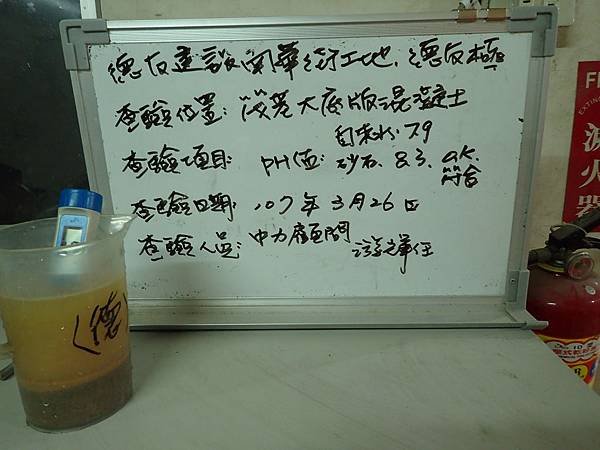 德友建設開華街工地.德友極
查驗位置:筏基大底版混凝土
自來水:7.9
查驗項目: PH值: 砂石. 8.3. ok.
符合
查驗日期: 107年3月26日
查驗人員: 中力顧問
(德)
滅火器